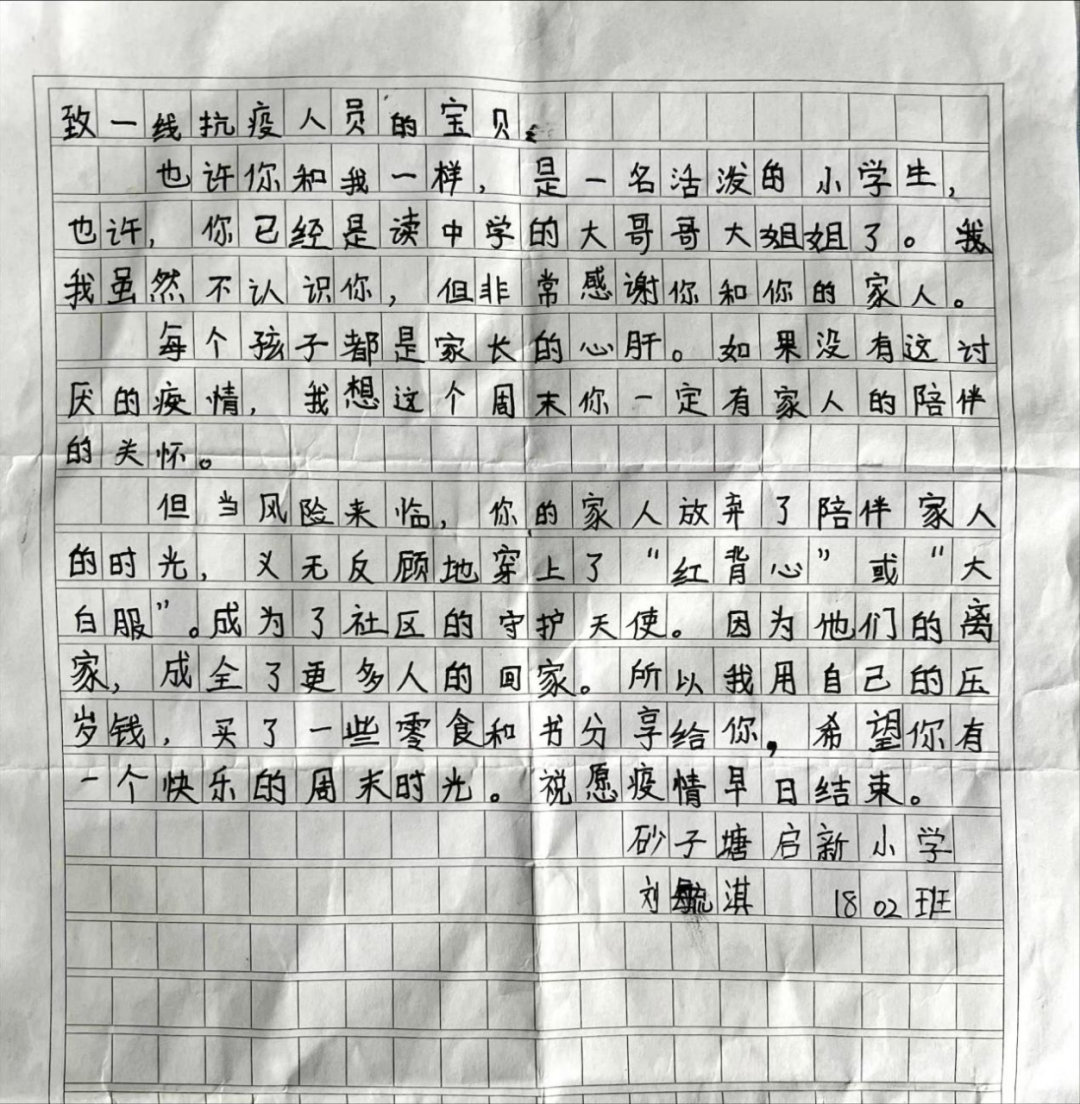 致一线抗疫人员的宝贝：
也许你和我一样，是一名活泼的小学生，
也许，你已经是读中学的大哥哥大姐姐了。我
我虽然不认识你，但非常感谢你和你的家人。
每个孩子都是家长的心肝。如果没有这讨
厌的疫情，我想这个周末你一定有家人的陪伴
的关怀。
但当风险来临，你的家人放弃了陪伴家人
的时光，义无反顾地穿上了“红背心”或“大
白服”。成为了社区的守护天使。因为他们的离
家，成全了更多人的回家。所以我用自己的压
岁钱，买了一些零食和书分享给你，希望你有
一个快乐的周末时光。祝愿疫情早日结束。
砂子塘启新小学
刘毓淇 1802班